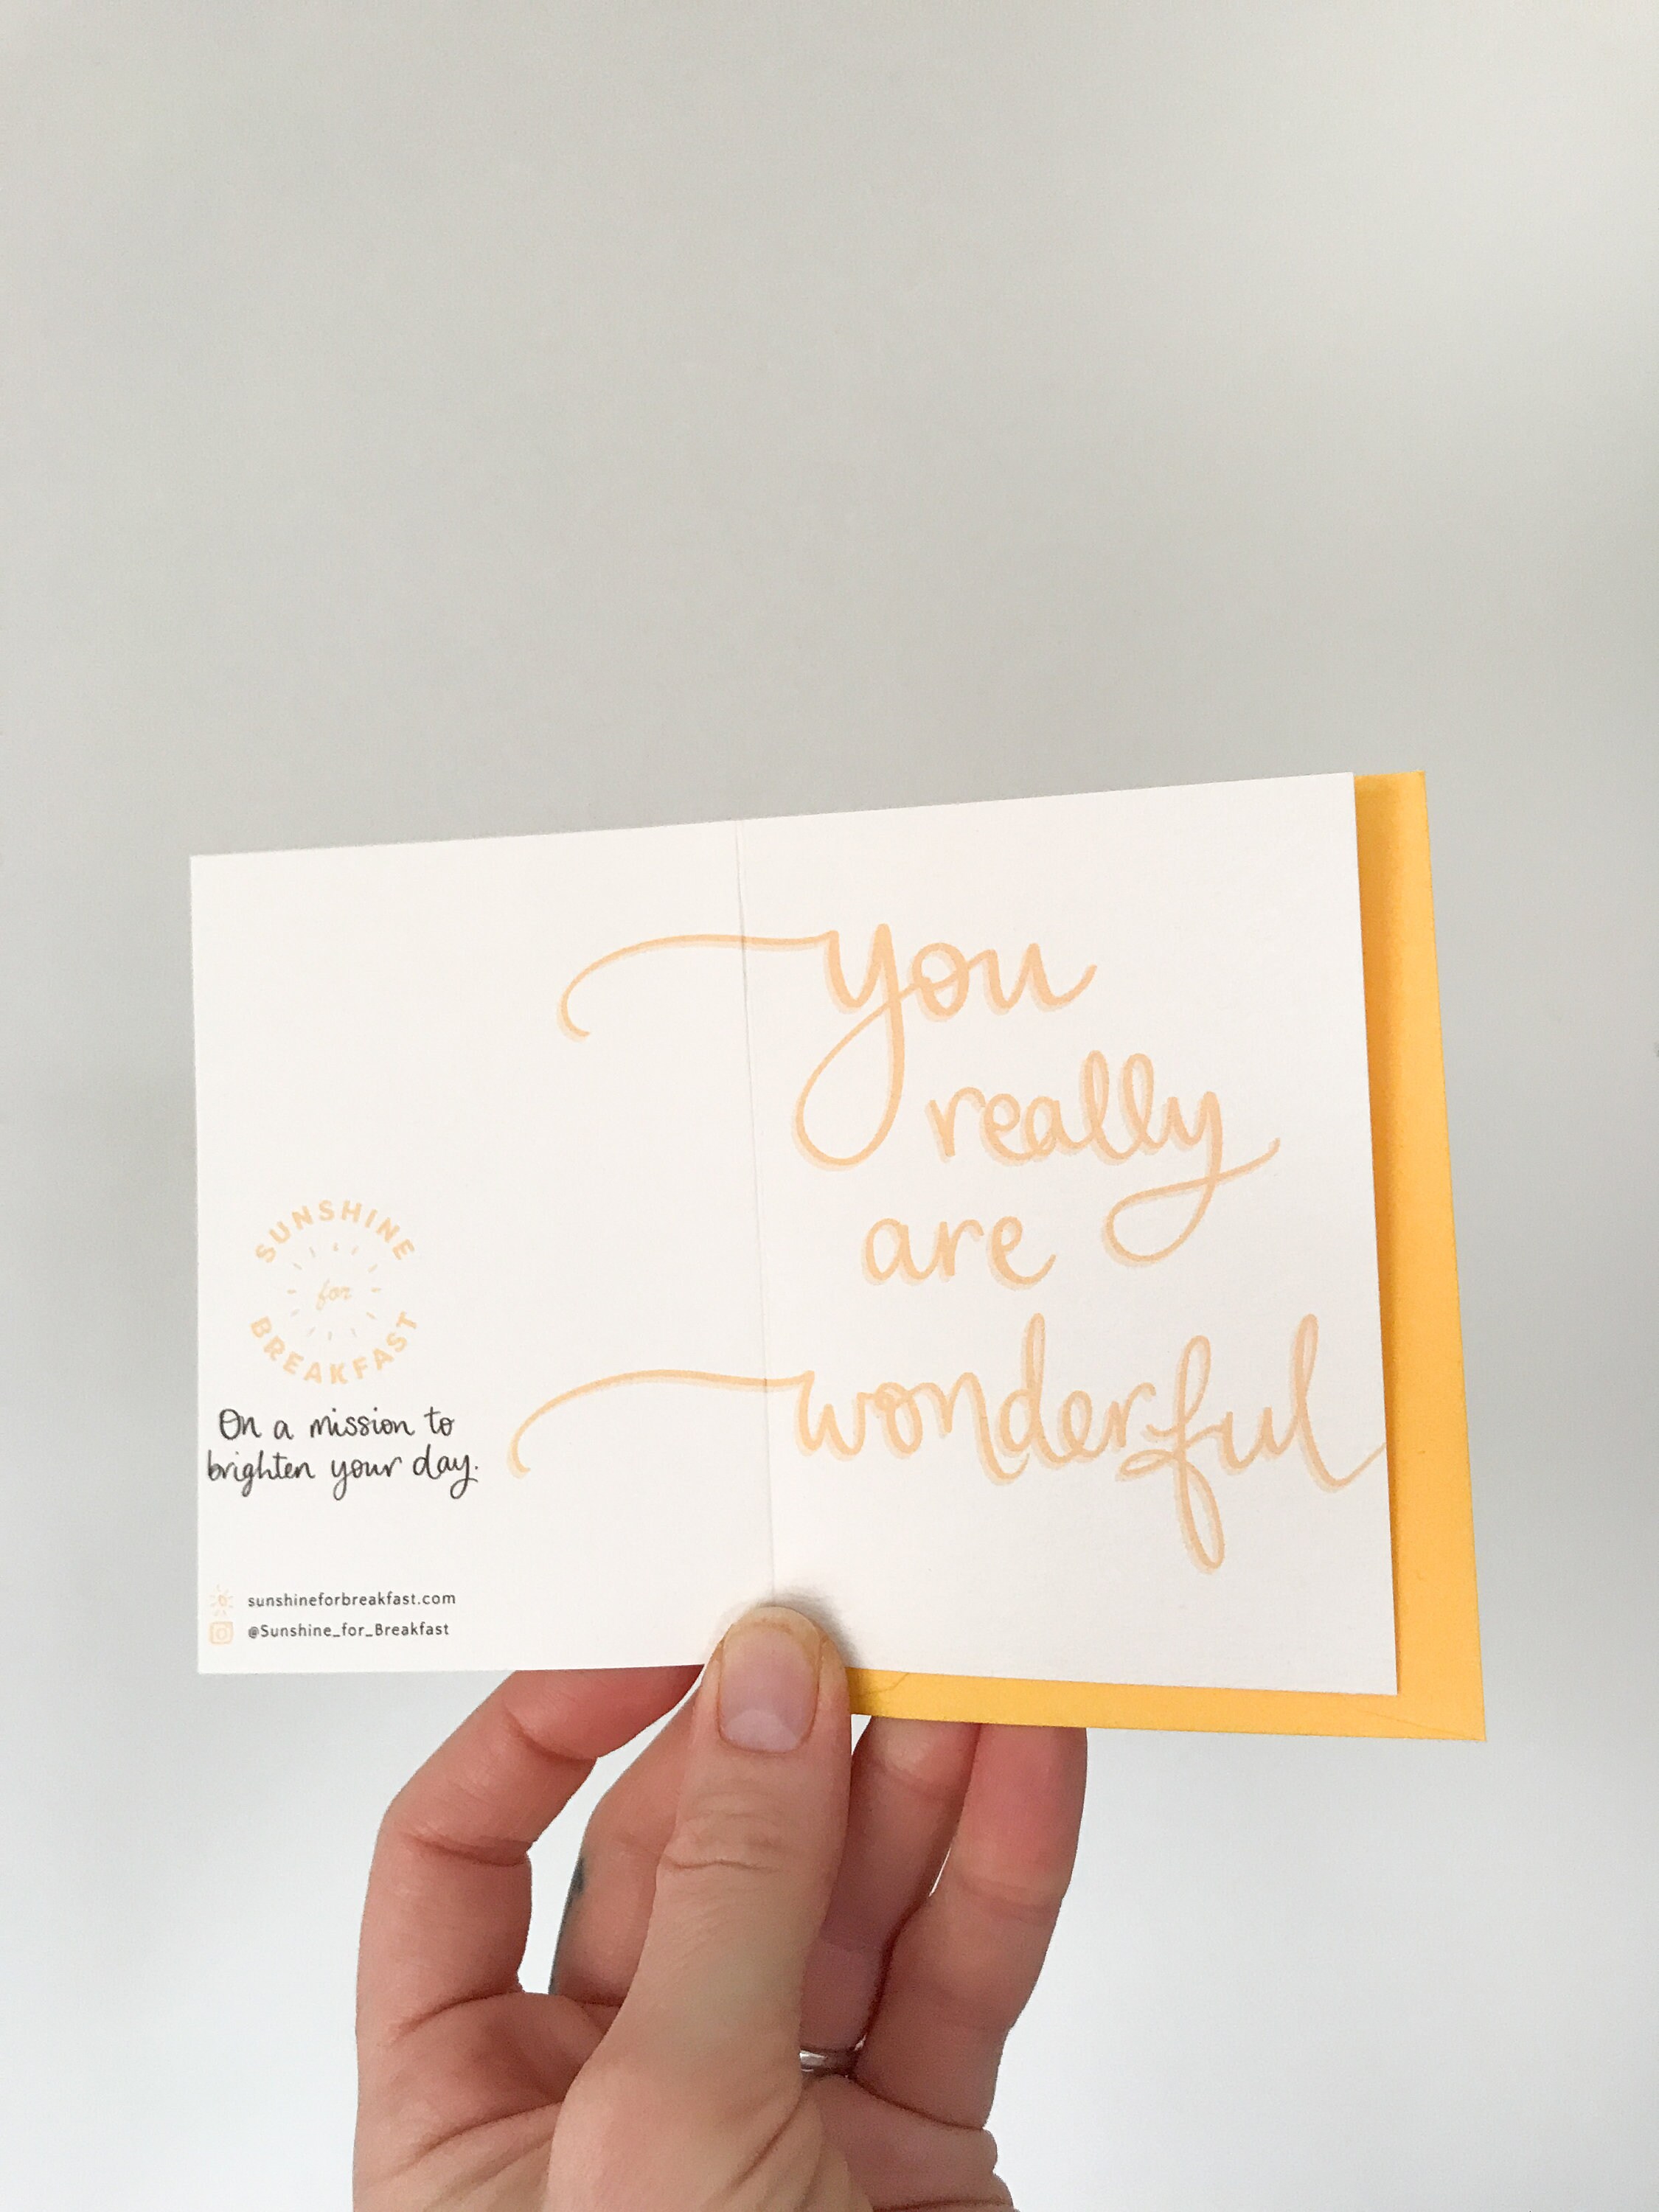 you
really
are
wonderful
SUNSHINE
for
BREAKFAST
On a mission to
brighten your day.
sunshineforbreakfast.com
@Sunshine_for_Breakfast